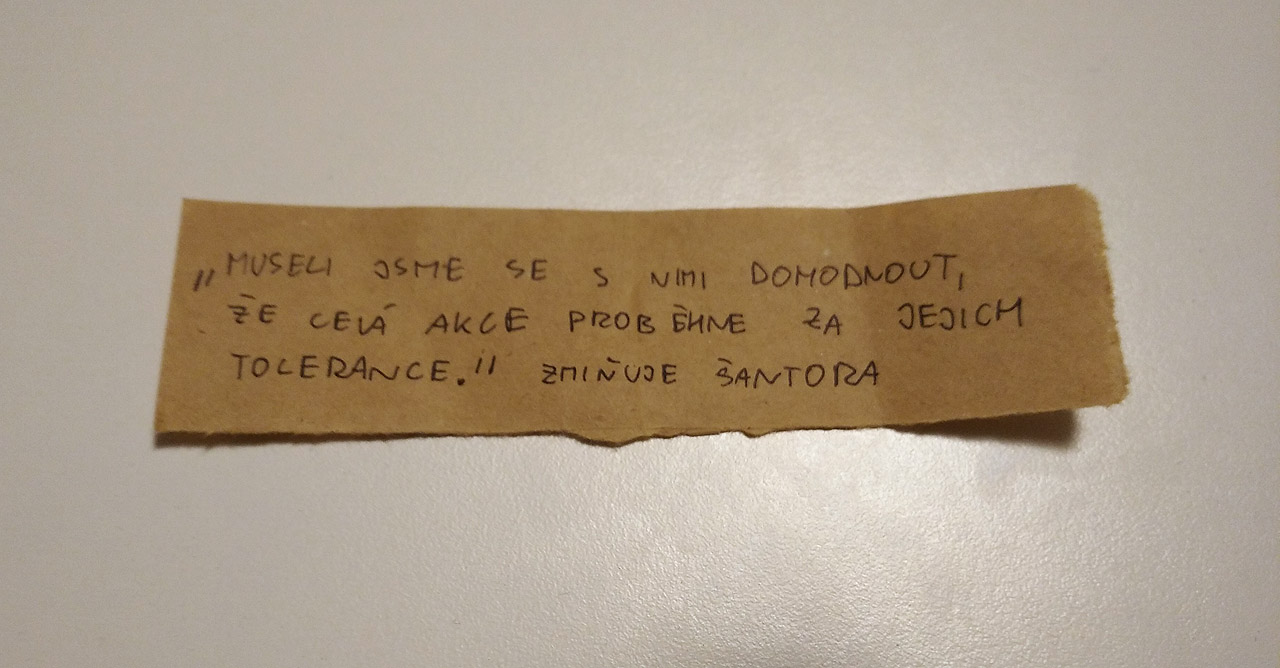 „MUSELI JSME SE S NIMI DOHODNOUT,
ŽE CELÁ AKCE PROBĚHNE ZA JEJICH
TOLERANCE." ZMIŇUJE ŠANTORA